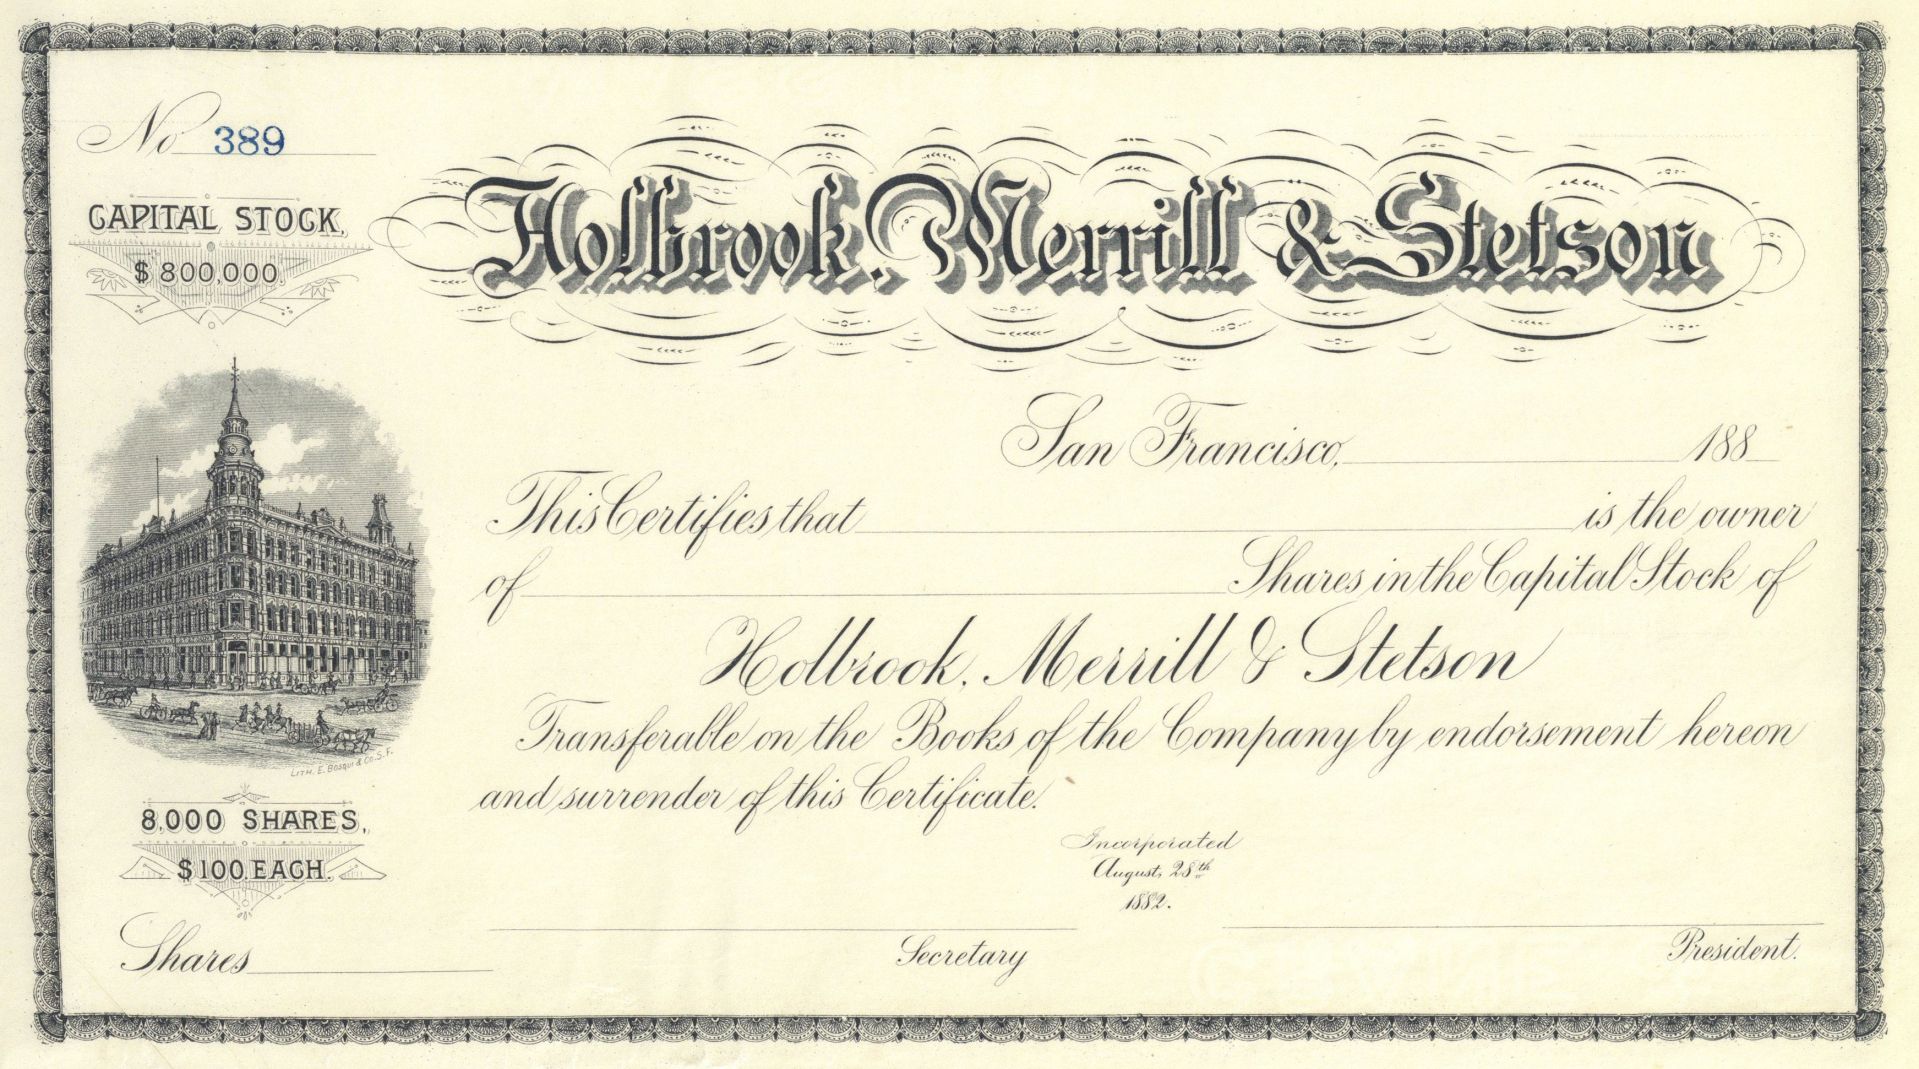 No 389
CAPITAL STOCK,
$ 800,000.
Holbrook, Merrill & Stetson
San Francisco, 188
This Certifies that is the owner
of Shares in the Capital Stock of
Holbrook, Merrill & Stetson
Transferable on the Books of the Company by endorsement hereon
and surrender of this Certificate.
LITH. E. BOSQUI & CO. S.F.
8,000 SHARES,
$100 EACH.
Incorporated
August, 28th
1882.
Shares
Secretary
President.